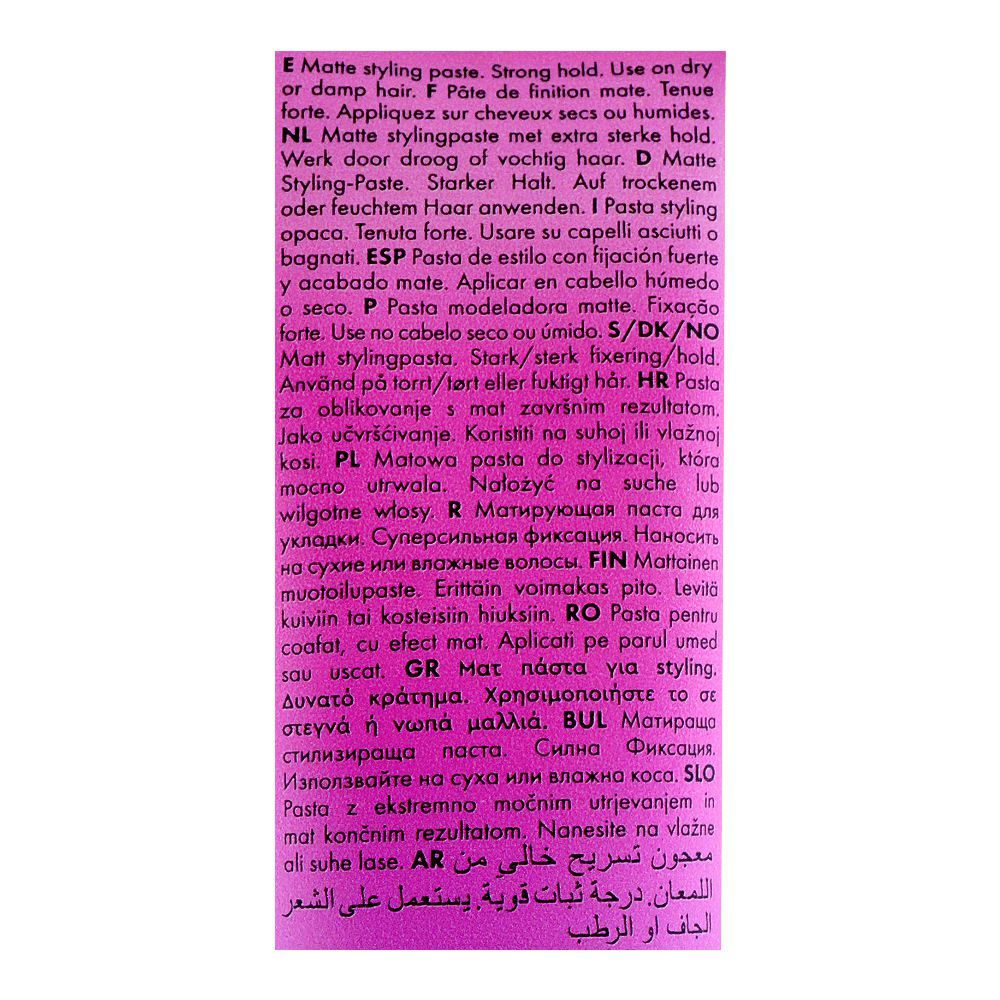 E Matte styling paste. Strong hold. Use on dry
or damp hair. F Pâte de finition mate. Tenue
forte. Appliquez sur cheveux secs ou humides.
NL Matte stylingpaste met extra sterke hold.
Werk door droog of vochtig haar. D Matte
Styling-Paste. Starker Halt. Auf trockenem
oder feuchtem Haar anwenden. I Pasta styling
opaca. Tenuta forte. Usare su capelli asciutti o
bagnati. ESP Pasta de estilo con fijación fuerte
y acabado mate. Aplicar en cabello húmedo
o seco. P Pasta modeladora matte. Fixação
forte. Use no cabelo seco ou úmido. S/DK/NO
Matt stylingpasta. Stark/sterk fixering/hold.
Använd på torrt/tørt eller fuktigt hår. HR Pasta
za oblikovanje s mat završnim rezultatom.
Jako učvršćivanje. Koristiti na suhoj ili vlažnoj
kosi. PL Matowa pasta do stylizacji, która
mocno utrwala. Nałożyć na suche lub
wilgotne włosy. R Матирующая паста для
укладки. Суперсильная фиксация. Наносить
на сухие или влажные волосы. FIN Mattainen
muotoilupaste. Erittäin voimakas pito. Levitä
kuiviin tai kosteisiin hiuksiin. RO Pasta pentru
coafat, cu efect mat. Aplicati pe parul umed
sau uscat. GR Ματ πάστα για styling.
Δυνατό κράτημα. Χρησιμοποιήστε το σε
στεγνά ή νωπά μαλλιά. BUL Матираща
стилизираща паста. Силна Фиксация.
Използвайте на суха или влажна коса. SLO
Pasta z ekstremno močnim utrjevanjem in
mat končnim rezultatom. Nanesite na vlažne
ali suhe lase. AR معجون تسريح خالي من
اللمعان. درجة ثبات قوية. يستعمل على الشعر
الجاف او الرطب